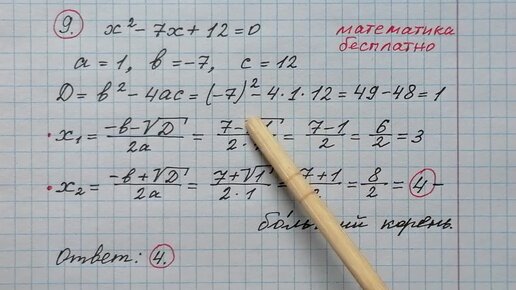 9. x² - 7x + 12 = 0
математика
бесплатно
a = 1, b = -7, c = 12
D = b² - 4ac = (-7)² - 4 · 1 · 12 = 49 - 48 = 1
x₁ = (-b - √D)/(2a) = (7 - √1)/(2 · 1) = (7 - 1)/2 = 6/2 = 3
x₂ = (-b + √D)/(2a) = (7 + √1)/(2 · 1) = (7 + 1)/2 = 8/2 = 4 -
корень.
Ответ: 4.